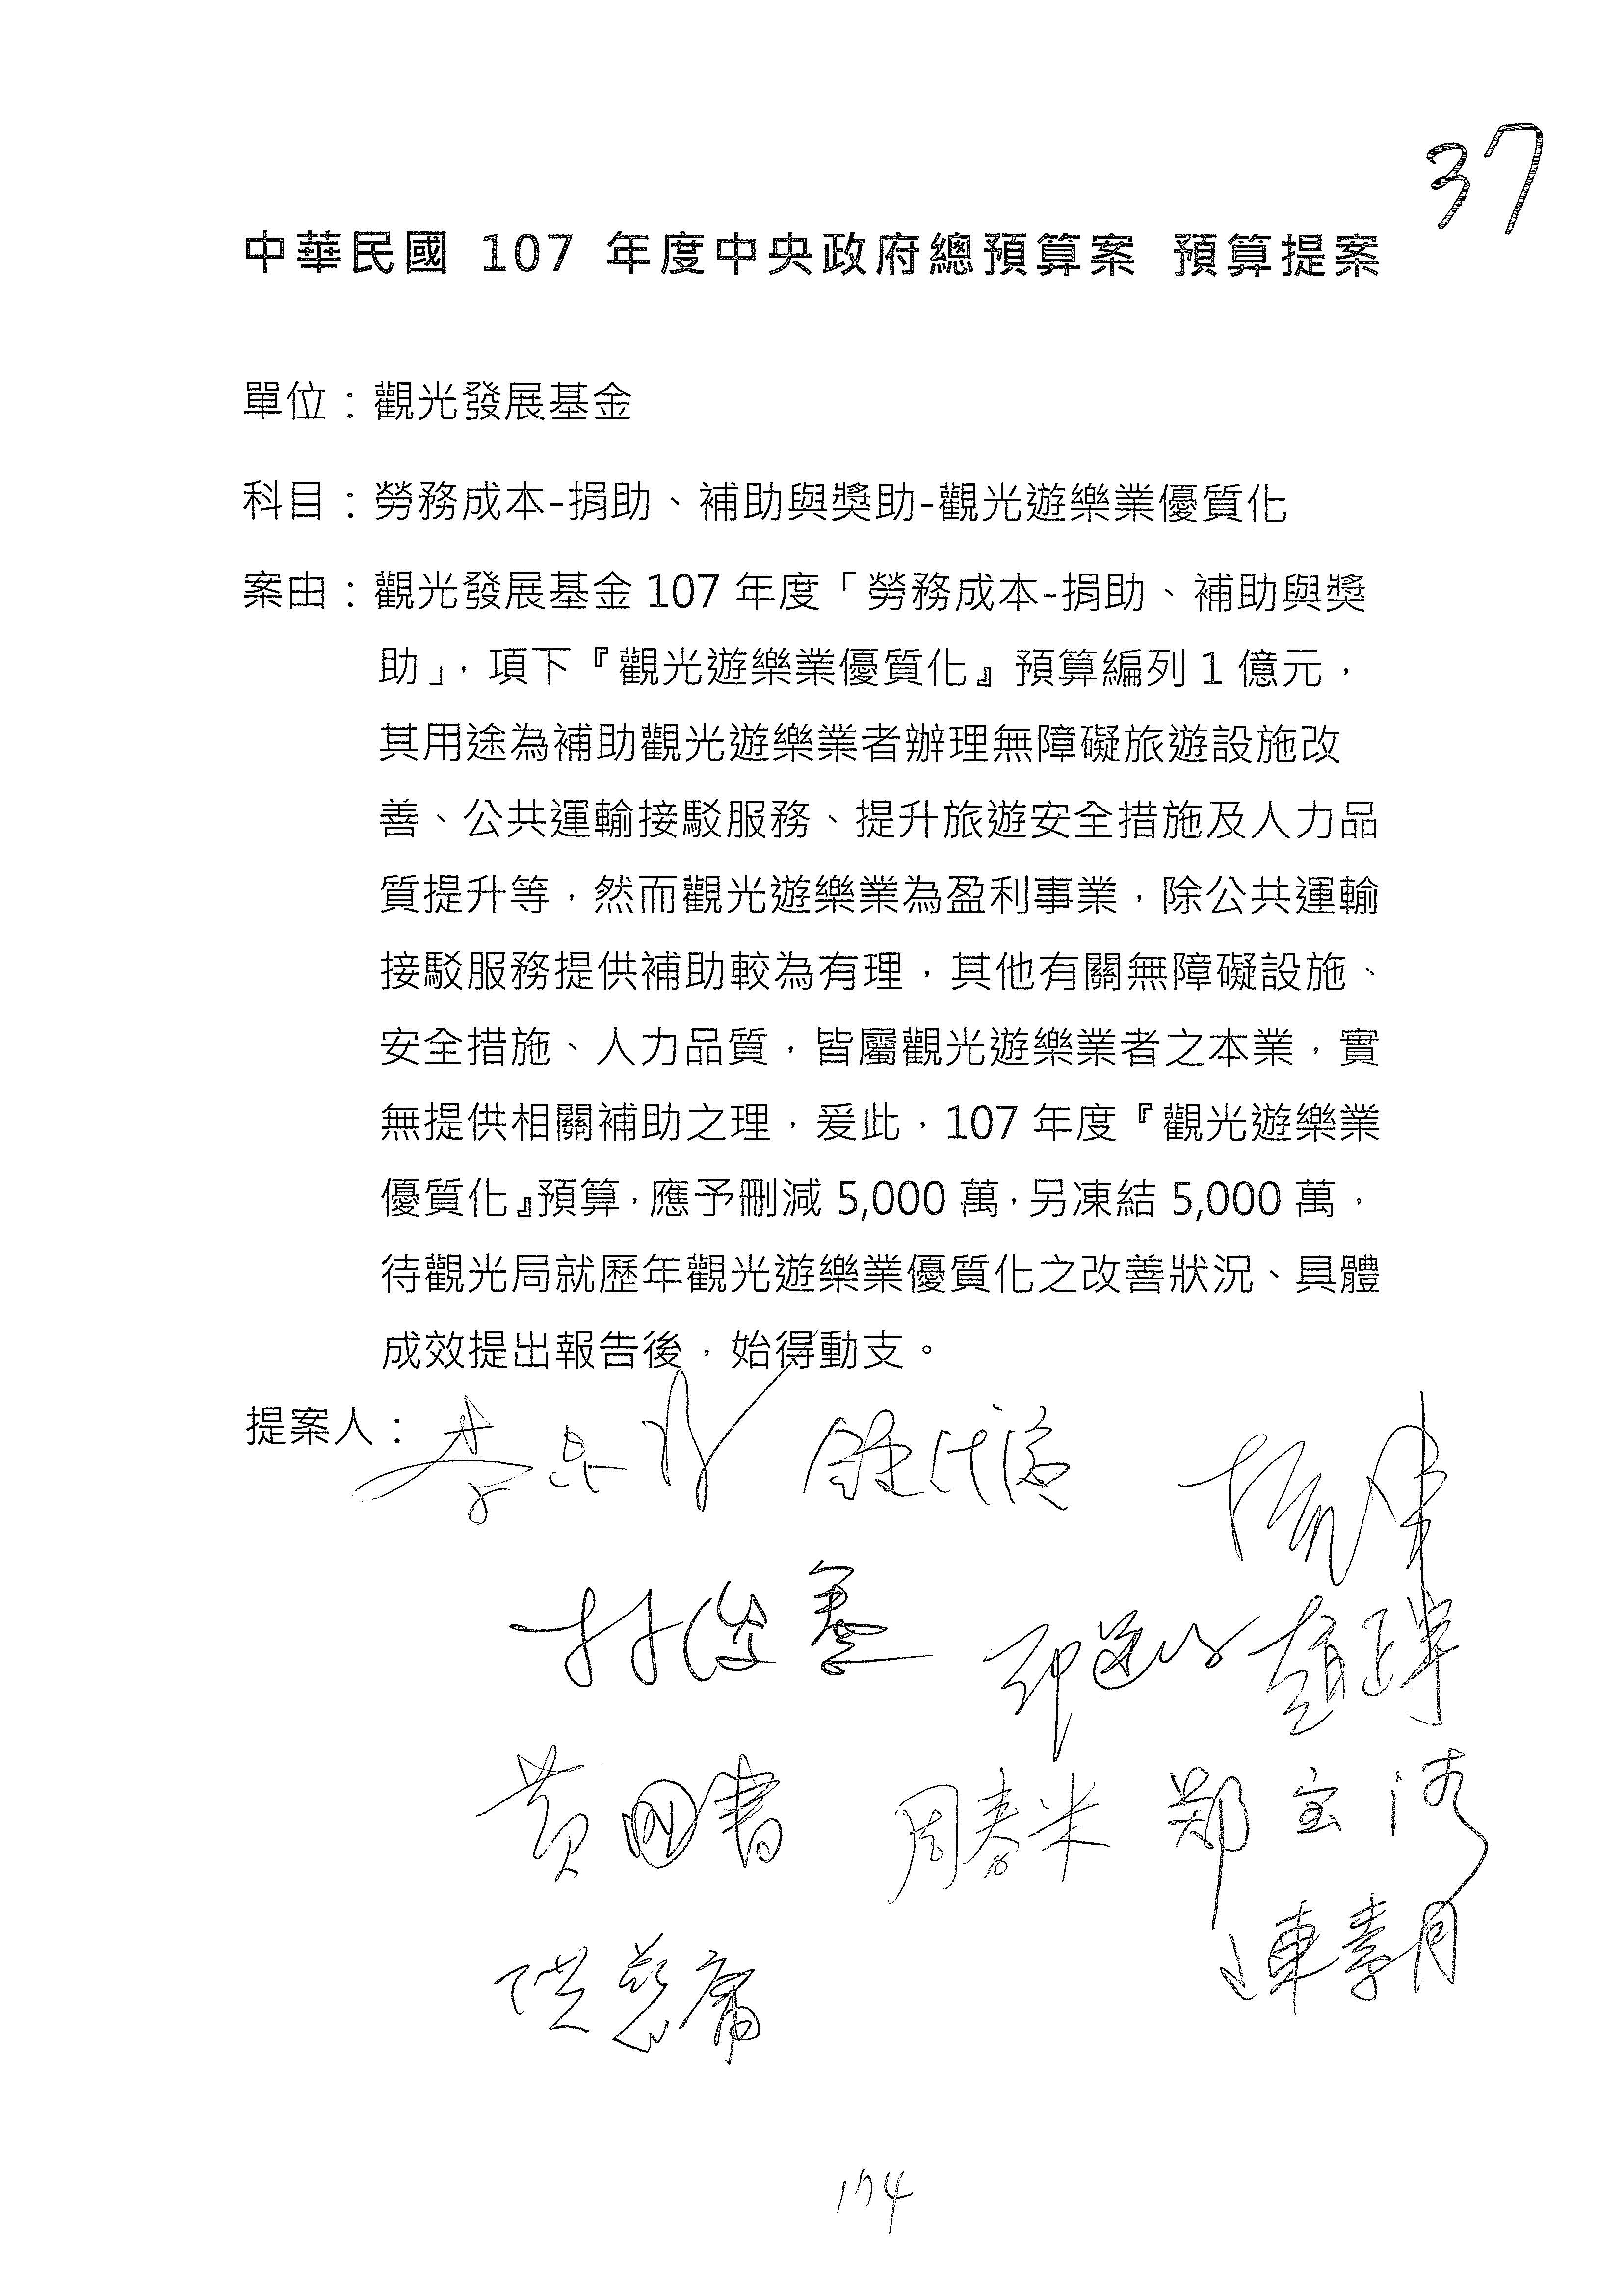 37
中華民國 107 年度中央政府總預算案 預算提案
單位：觀光發展基金
科目：勞務成本-捐助、補助與獎助-觀光遊樂業優質化
案由：觀光發展基金 107 年度「勞務成本-捐助、補助與獎
助」，項下『觀光遊樂業優質化』預算編列 1 億元，
其用途為補助觀光遊樂業者辦理無障礙旅遊設施改
善、公共運輸接駁服務、提升旅遊安全措施及人力品
質提升等，然而觀光遊樂業為盈利事業，除公共運輸
接駁服務提供補助較為有理，其他有關無障礙設施、
安全措施、人力品質，皆屬觀光遊樂業者之本業，實
無提供相關補助之理，爰此，107 年度『觀光遊樂業
優質化』預算，應予刪減 5,000 萬，另凍結 5,000 萬，
待觀光局就歷年觀光遊樂業優質化之改善狀況、具體
成效提出報告後，始得動支。
提案人：
林俊憲
黃國書 周春米 鄭宝清
陳素月
洪慈庸
174